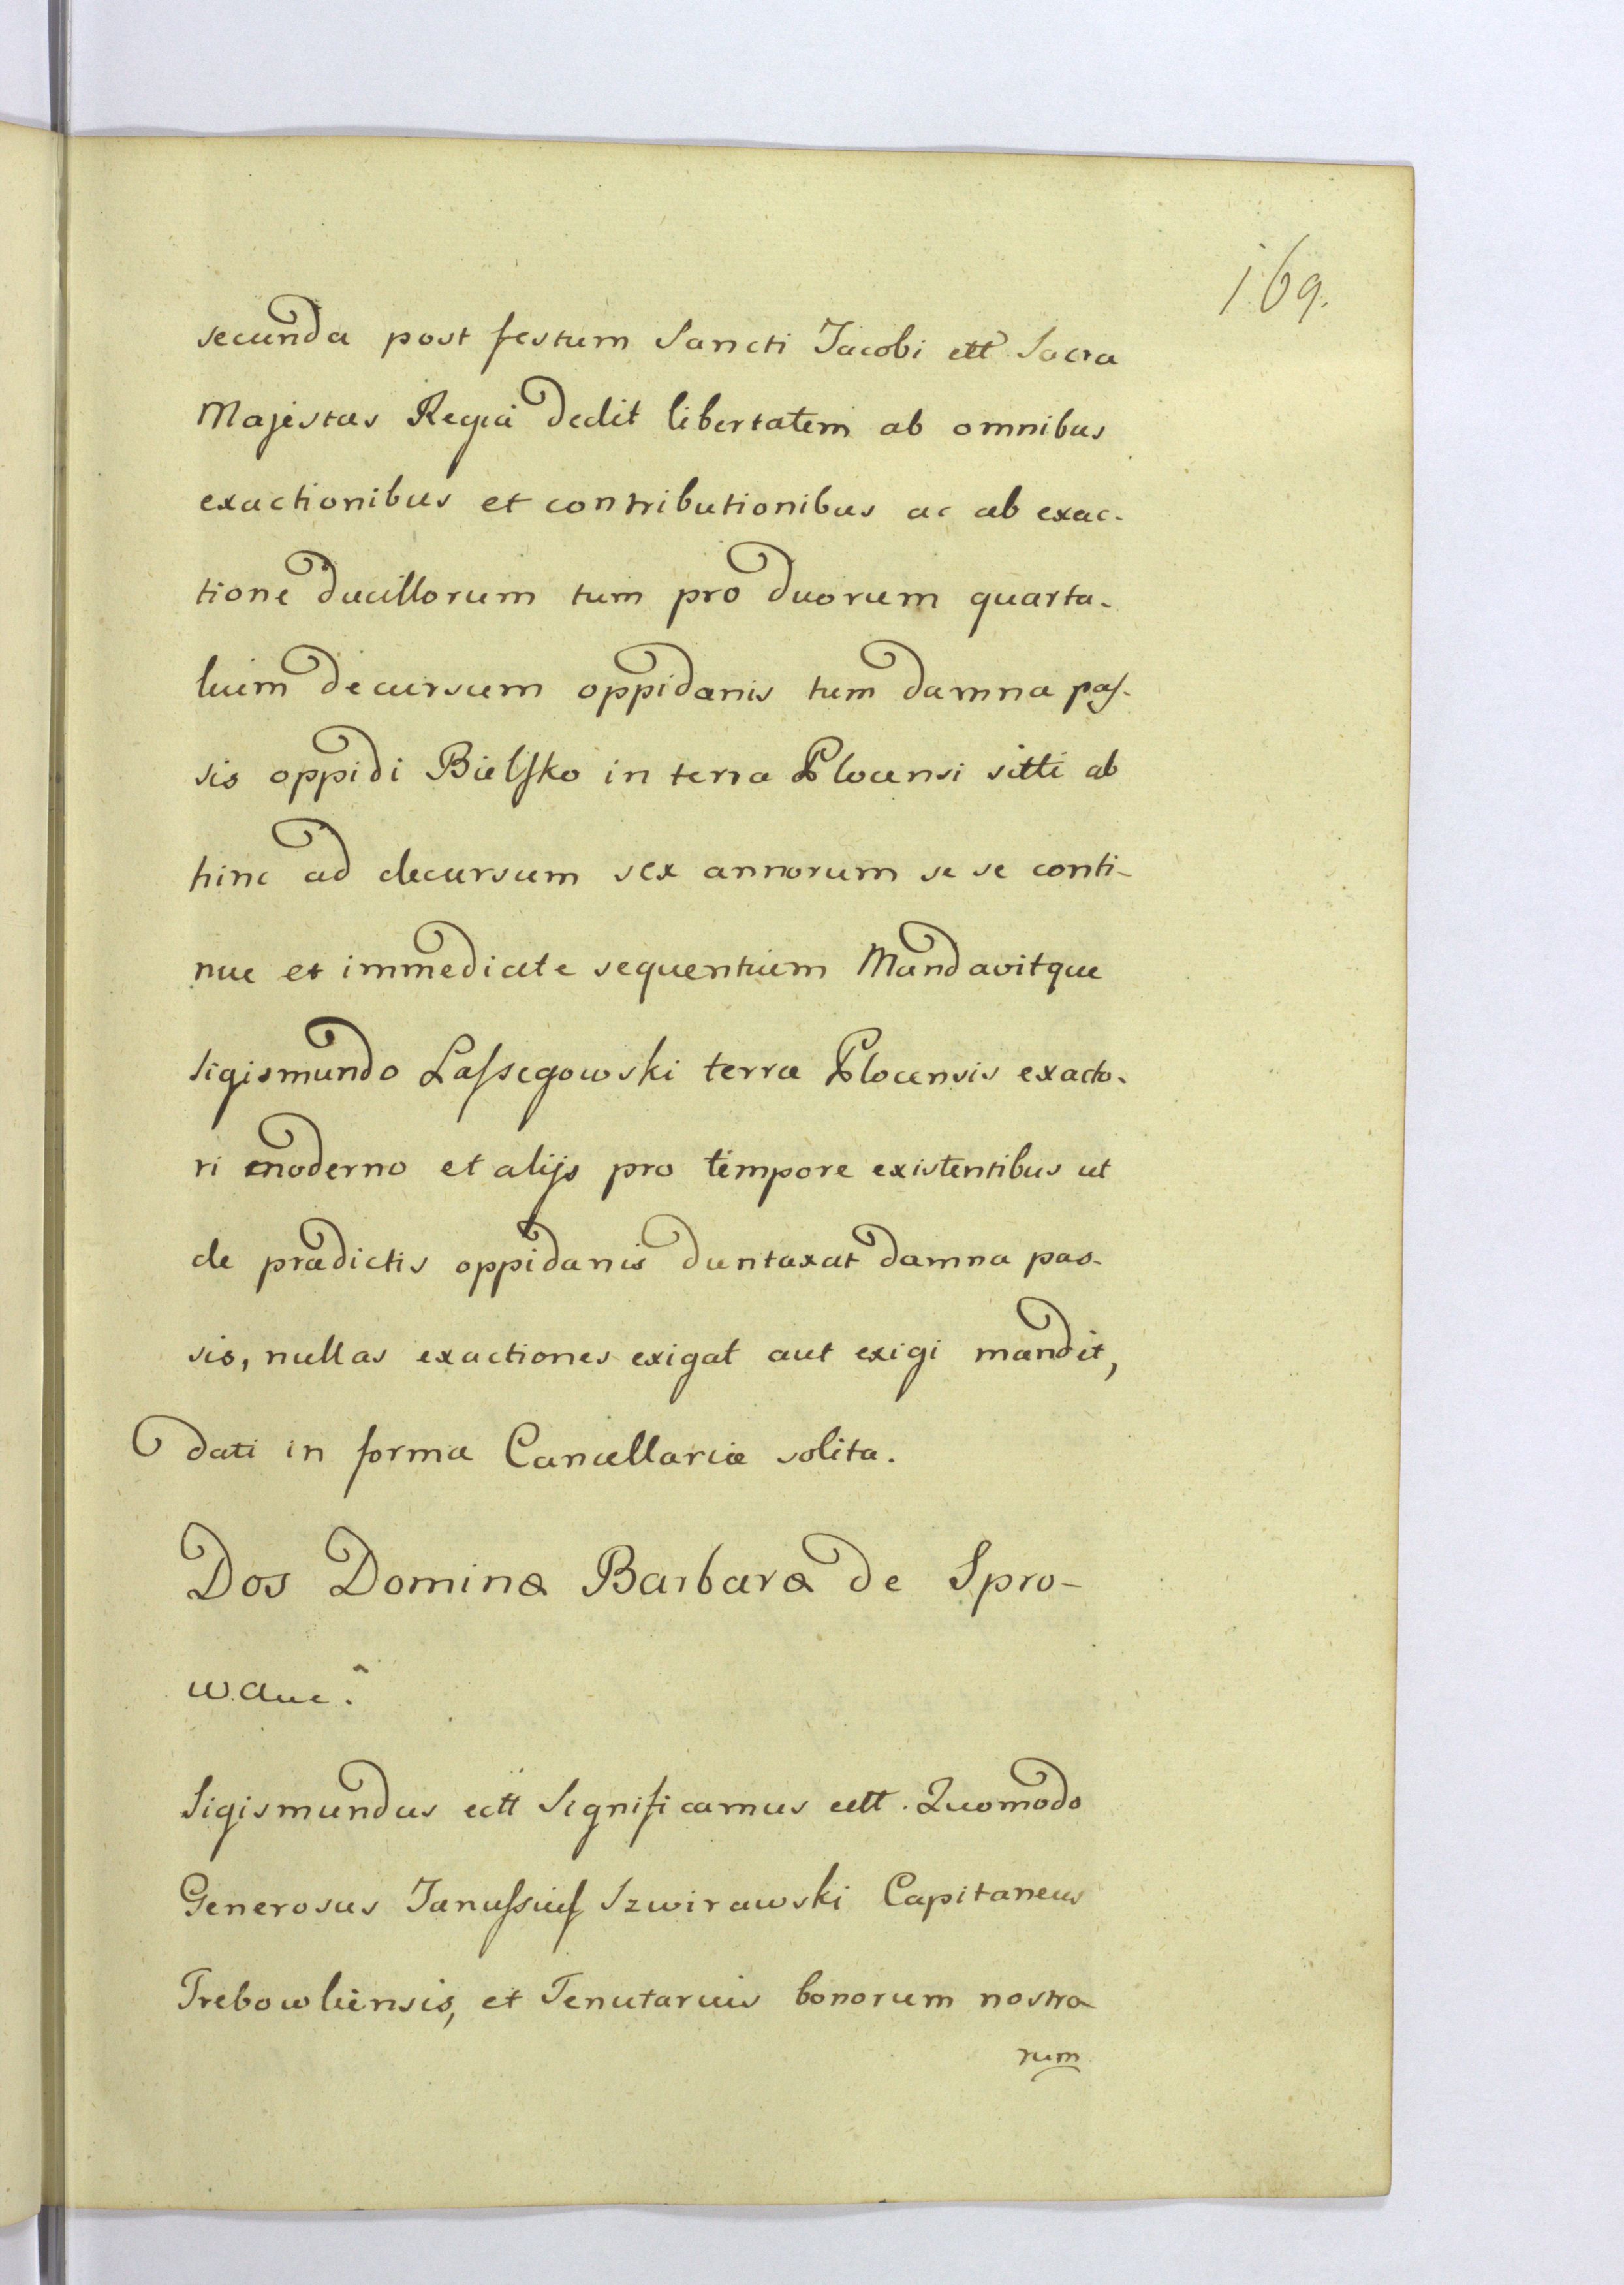 169.
secunda post festum Sancti Jacobi ett Sacra
Majestas Regia dedit libertatem ab omnibus
exactionibus et contributionibus ac ab exac-
tione ducillorum tum pro duorum quarta-
lium decursum oppidanis tum damna pas-
sis oppidi Bielsko in terra Plocensi sitti ab
hinc ad decursum sex annorum se se conti-
nue et immediate sequentium Mandavitque
Sigismundo Lassegowski terræ Plocensis exacto-
ri moderno et alijs pro tempore existentibus ut
de prædictis oppidanis duntaxat damna pas-
sis, nullas exactiones exigat aut exigi mandit,
dati in forma Cancellariæ solita.
Dos Dominæ Barbaræ de Spro-
Sigismundus ectt Significamus ectt. Quomodo
Generosus Janussius Szwirawski Capitaneus
Trebowliensis, et Tenutarius bonorum nostro
rum